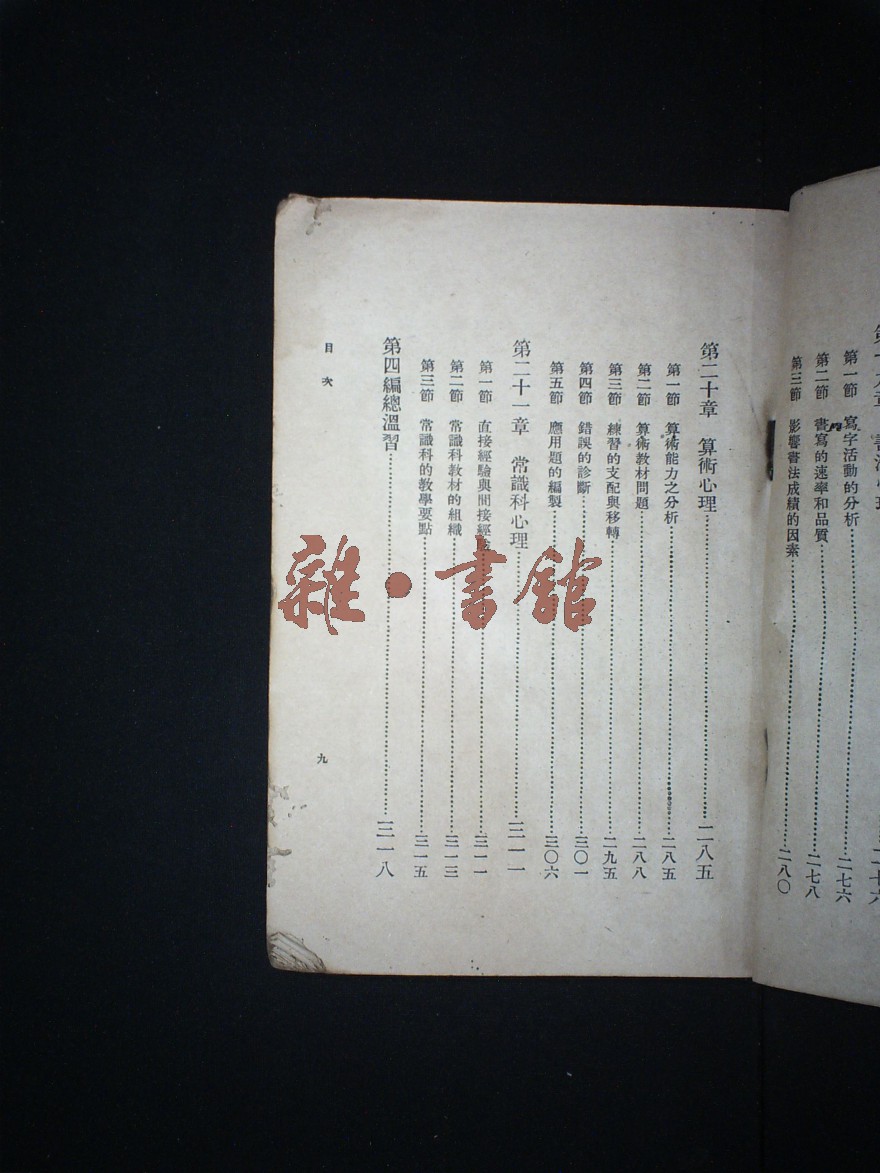 第一節 寫字活動的分析 二七六
第二節 書寫的速率和品質 二七八
第三節 影響書法成績的因素 二八〇
第二十章 算術心理 二八五
第一節 算術能力之分析 二八五
第二節 算術教材問題 二八八
第三節 練習的支配與移轉 二九五
第四節 錯誤的診斷 三〇一
第五節 應用題的編製 三〇六
第二十一章 常識科心理 三一一
第一節 直接經驗與間接經 三一一
第二節 常識科教材的組織 三一三
第三節 常識科的教學要點 三一五
第四編總溫習 三一八
目次
九
雜·書館